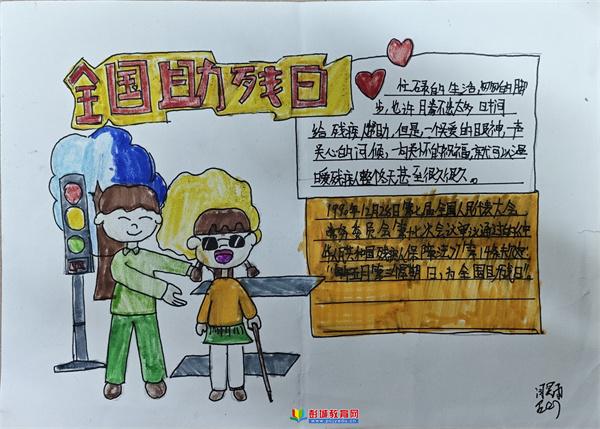 全国助残日
忙碌的生活,匆匆的脚
步,也许日常不是太多时间
给残疾人帮助,但是,一个关爱的眼神,一声
关心的问候,一句关怀的祝福,就可以温
暖残疾人整个冬天甚至很久很久。
1990年12月28日第七届全国人民代表大会
常务委员会第十七次会议审议通过的《中
华人民共和国残疾人保障法》第14条
五月第三个星期日,为全国助残日"
彭城教育网